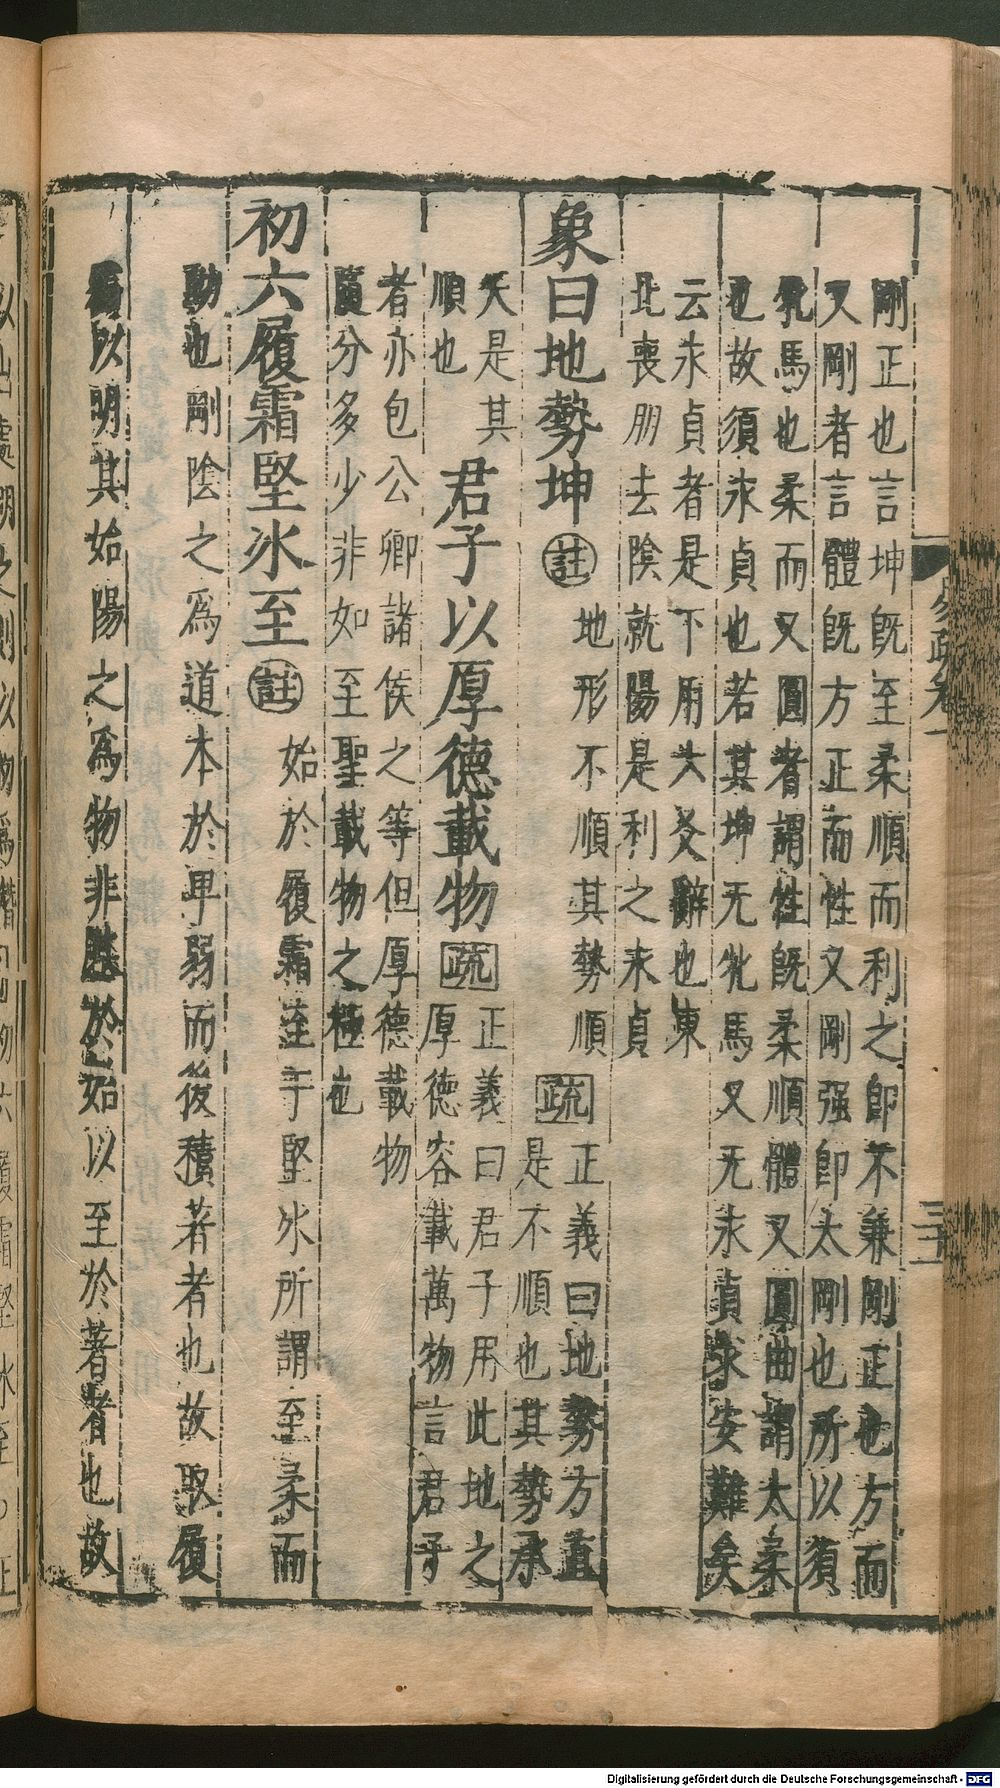 剛正也言坤旣至柔順而利之卽不兼剛正也方而
又剛者言體旣方正而性又剛强卽太剛也所以須
牝馬也柔而又圓者謂性旣柔順體又圓曲謂太柔
也故須永貞也若其坤无牝馬又无永貞求安難矣
云永貞者是下用六爻辭也東
北喪朋去陰就陽是利之永貞
象曰地勢坤 註 地形不順其勢順 疏 正義曰地勢方直
是不順也其勢承
天是其
順也
君子以厚德載物 疏 正義曰君子用此地之
厚德容載萬物言君子
者亦包公卿諸侯之等但厚德載物
隨分多少非如至聖載物之極也
初六履霜堅冰至 註 始於履霜至于堅冰所謂至柔而
動也剛陰之爲道本於卑弱而後積著者也故取履
霜以明其始陽之爲物非基於始以至於著者也故
易疏卷一
以出處明之則以初爲潛
Digitalisierung gefördert durch die Deutsche Forschungsgemeinschaft - DFG